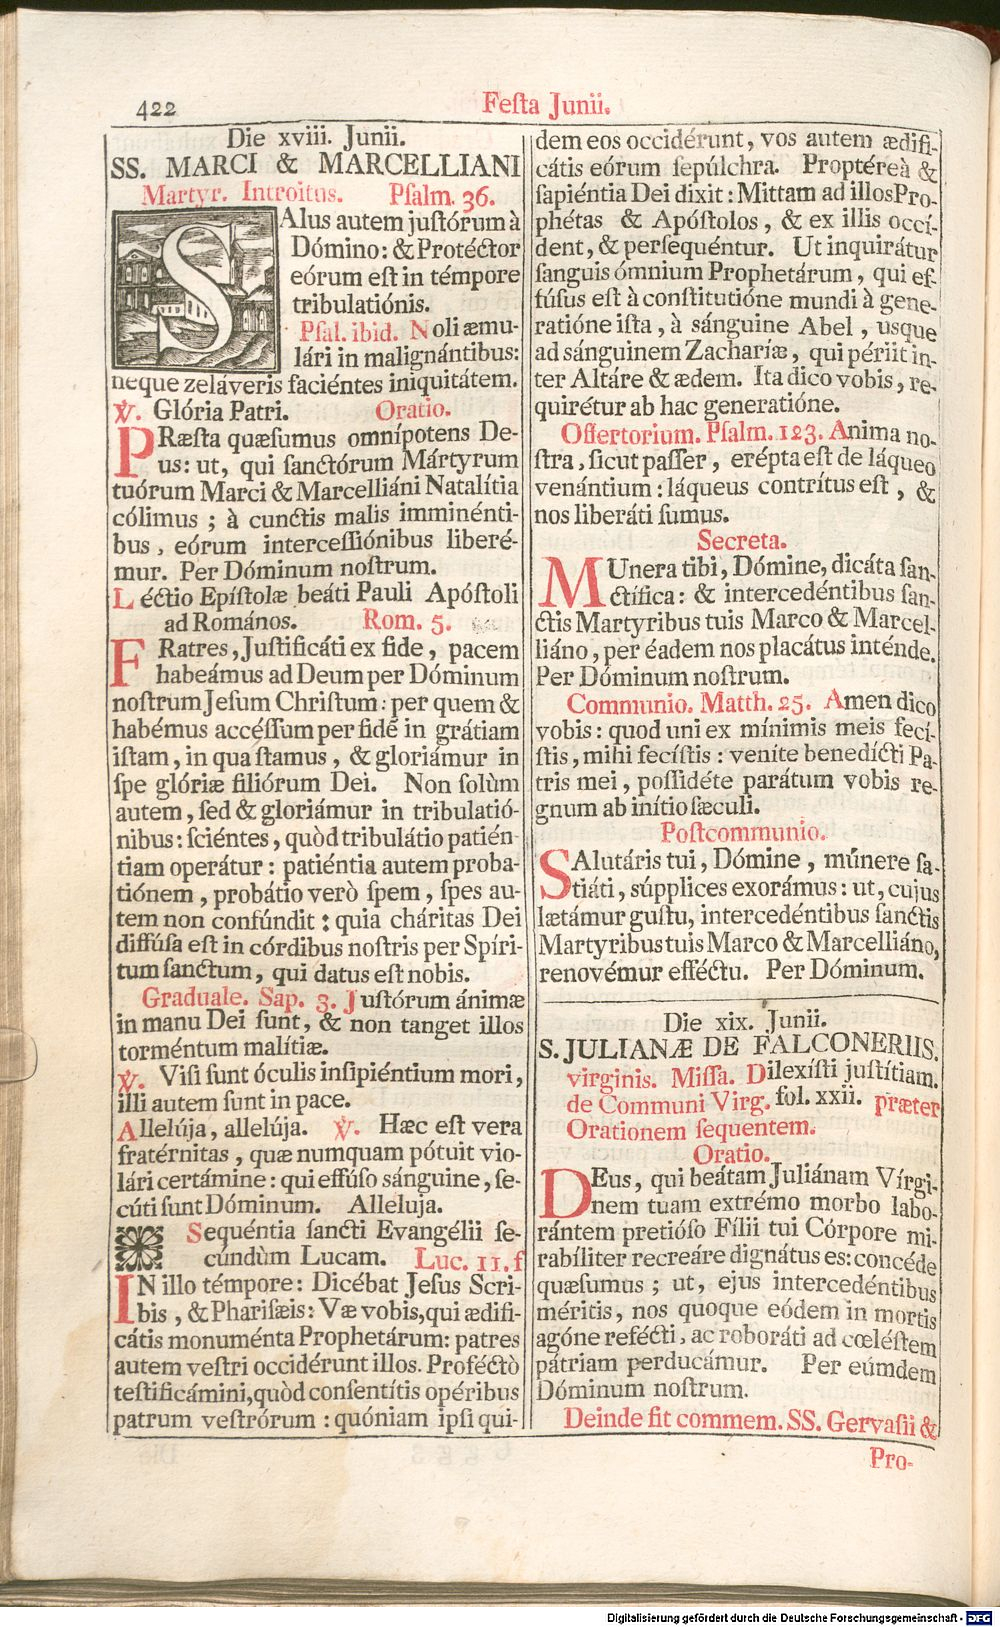 422
Feſta Junii.
Die xviii. Junii.
SS. MARCI & MARCELLIANI
Martyr. Introitus. Pſalm. 36.
SAlus autem juſtórum à
Dómino: & Protéctor
eórum eſt in témpore
tribulatiónis.
Pſal. ibid. Noli æmu-
lári in malignántibus:
neque zeláveris faciéntes iniquitátem.
℣. Glória Patri. Oratio.
PRæſta quæſumus omnípotens De-
us: ut, qui ſanctórum Mártyrum
tuórum Marci & Marcelliáni Natalítia
cólimus ; à cunctis malis imminénti-
bus, eórum interceſſiónibus liberé-
mur. Per Dóminum noſtrum.
Léctio Epíſtolæ beáti Pauli Apóſtoli
ad Romános. Rom. 5.
FRatres, Juſtificáti ex fide, pacem
habeámus ad Deum per Dóminum
noſtrum Jeſum Chriſtum: per quem &
habémus accéſſum per fidē in grátiam
iſtam, in qua ſtamus, & gloriámur in
ſpe glóriæ filiórum Dei. Non ſolùm
autem, ſed & gloriámur in tribulatió-
nibus: ſciéntes, quòd tribulátio patién-
tiam operátur: patiéntia autem proba-
tiónem, probátio verò ſpem, ſpes au-
tem non confúndit: quia cháritas Dei
diffúſa eſt in córdibus noſtris per Spíri-
tum ſanctum, qui datus eſt nobis.
Graduale. Sap. 3. Juſtórum ánimæ
in manu Dei ſunt, & non tanget illos
torméntum malítiæ.
℣. Viſi ſunt óculis inſipiéntium mori,
illi autem ſunt in pace.
Allelúja, allelúja. ℣. Hæc eſt vera
fratérnitas, quæ numquam pótuit vio-
lári certámine: qui effúſo sánguine, ſe-
cúti ſunt Dóminum. Alleluja.
Sequéntia ſancti Evangélii ſe-
cúndùm Lucam. Luc. 11. f
IN illo témpore: Dicébat Jeſus Scri-
bis, & Phariſæis: Væ vobis, qui ædifi-
cátis monuménta Prophetárum: patres
autem veſtri occidérunt illos. Profécto
teſtificámini, quòd conſentítis opéribus
patrum veſtrórum: quóniam ipſi qui-
dem eos occidérunt, vos autem ædifi-
cátis eórum ſepúlchra. Proptéreà &
ſapiéntia Dei dixit: Mittam ad illos Pro-
phétas & Apóſtolos, & ex illis occí-
dent, & perſequéntur. Ut inquirátur
ſanguis ómnium Prophetárum, qui ef-
fúſus eſt à conſtitutióne mundi à gene-
ratióne iſta, à sánguine Abel, usque
ad sánguinem Zacharíæ, qui périit in-
ter Altáre & ædem. Ita dico vobis, re-
quirétur ab hac generatióne.
Offertorium. Pſalm. 123. Anima no-
ſtra, ſicut paſſer, erépta eſt de láqueo
venántium: láqueus contrítus eſt, &
nos liberáti ſumus.
Secreta.
MUnera tibi, Dómine, dicáta ſan-
ctífica: & intercedéntibus ſan-
ctis Martyribus tuis Marco & Marcel-
liáno, per éadem nos placátus inténde.
Per Dóminum noſtrum.
Communio. Matth. 25. Amen dico
vobis: quod uni ex mínimis meis fecí-
ſtis, mihi fecíſtis: veníte benedícti Pa-
tris mei, poſſidéte parátum vobis re-
gnum ab inítio ſæculi.
Poſtcommunio.
SAlutáris tui, Dómine, múnere ſa-
tiáti, súpplices exorámus: ut, cujus
lætámur guſtu, intercedéntibus ſanctis
Martyribus tuis Marco & Marcelliáno,
renovémur efféctu. Per Dóminum.
Die xix. Junii.
S. JULIANÆ DE FALCONERIIS.
virginis. Miſſa. Dilexíſti juſtítiam.
de Communi Virg. fol. xxii. præter
Orationem ſequentem.
Oratio.
DEus, qui beátam Juliánam Vírgi-
nem tuam extrémo morbo labo-
rántem pretióſo Fílii tui Córpore mi-
rabíliter recreáre dignátus es: concéde
quæſumus; ut, ejus intercedéntibus
méritis, nos quoque eódem in mortis
agóne refécti, ac roboráti ad cœléſtem
pátriam perducámur. Per eúmdem
Dóminum noſtrum.
Deinde fit commem. SS. Gervaſii &
Pro-
Digitalisierung gefördert durch die Deutsche Forschungsgemeinschaft - DFG